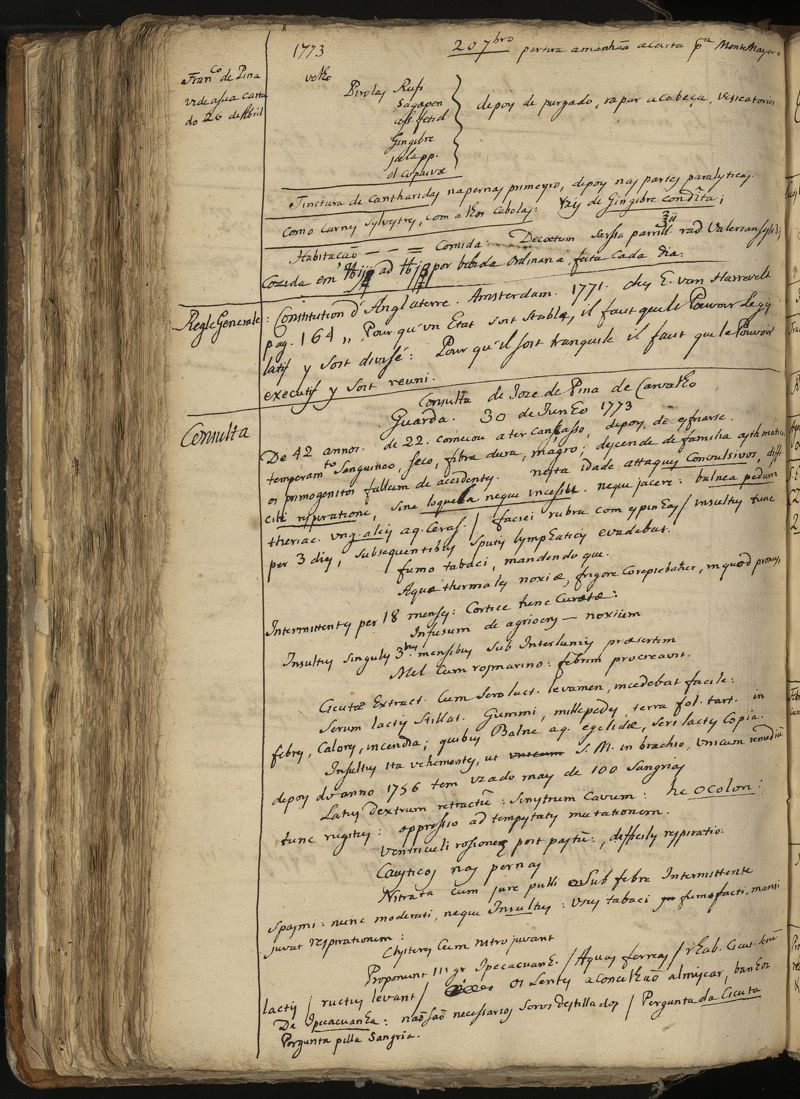 1773
20 7bro partira amanhãa acarta pa MonteMayor
Franco de Pina
vide asua carta
do 26 de Abril
velho
Pirolas Rufi
Sagapen
ass. fetid
Gingibre
jalapp.
ol copaivæ
depois de purgado, rapar acabeça, vesicatorios
Tinctura de Cantharidas napernas primeyro, depois nas partes paralyticas.
como Carnes sylvestres, com alhos Cebolas: de Gingibre condita;
Habitação — — = Comida: Decoctum sarssa parrill rad Valerian sylv
Cozida em ad por bebida ordinaria, feita cada dia.
Regle Generale: Constitution d'Angleterre. Amsterdam. 1771. chez E. van Harrevelt
pag. 164 „ Pour qu'un Etat soit stable, il faut que le Pouvoir Legis
latif y soit divisé: Pour qu'il soit tranquile il faut que le Pouvoir
executif y soit reuni.
Consulta
Consulta de Joze de Pina de Carvalho
Guarda. 30 de Junho 1773
De 42 annos. de 22. comecou a ter Canssasso, depois de esfriarse.
temperamto sanguineo, seco, fibra dura, magro; descende de familia asthmatica
os primogenitos fallecem de accidentes. nesta idade attaques Convulsivos, diffi
cili respiratione, sine loquela neque incessu. neque jacere: balnea pedum
theriac. ung. alcis aq. Ceras. / faciei rubra com espinhas / insultus tunc
per 3 dies, subsequentibus sputis lymphaticis evadebat.
fumo tabaci, mandendo que.
Aquæ thermales noxiæ, frigore corripiebatur, in quod pronus,
Intermittentes per 18 menses: Cortice tunc Curatæ:
Infusum de agriocens — noxium
Insultus singulis 3bus mensibus sub Interluniis præsertim
Mel Cum rosmarino: febrim procreavit.
Cicutæ Extract. Cum sero lact. levamen, incedebat facile:
Serum lactis stillat. Gummi, millepedes, terra fol. tart. in
febres, Calores, incendia; quibus Balne aq. egelidæ, seri lactis copia.
Insultus ita vehementes, ut S. M. in brachio, unicum remedium
depois do anno 1756 tem uzado mais de 100 sangrias
Latus dextrum retractum: sinistrum Cavum: he o Colon:
tunc rugitus: oppressio ad tempestatis mutationem.
Ventriculi rosiones post pastum, difficilis respiratio.
Causticos nas pernas
Nitrata cum jure pulli Sub febre Intermittente
spasmi: nunc moderati, neque Insultus: unus tabaci fumo facti, mansi
juvat respirationem:
Clysteres Cum nitro juvant
Proponunt III gr Ipecacuanh. / Aquas ferreas /
lactis / ructus levant / os Sentes aConcelhaõ almiscar, banhos
Da Ipecacuanha: naõ saõ necessarios soros destillados / Pergunta da Cicuta
Pergunta pella Sangria.